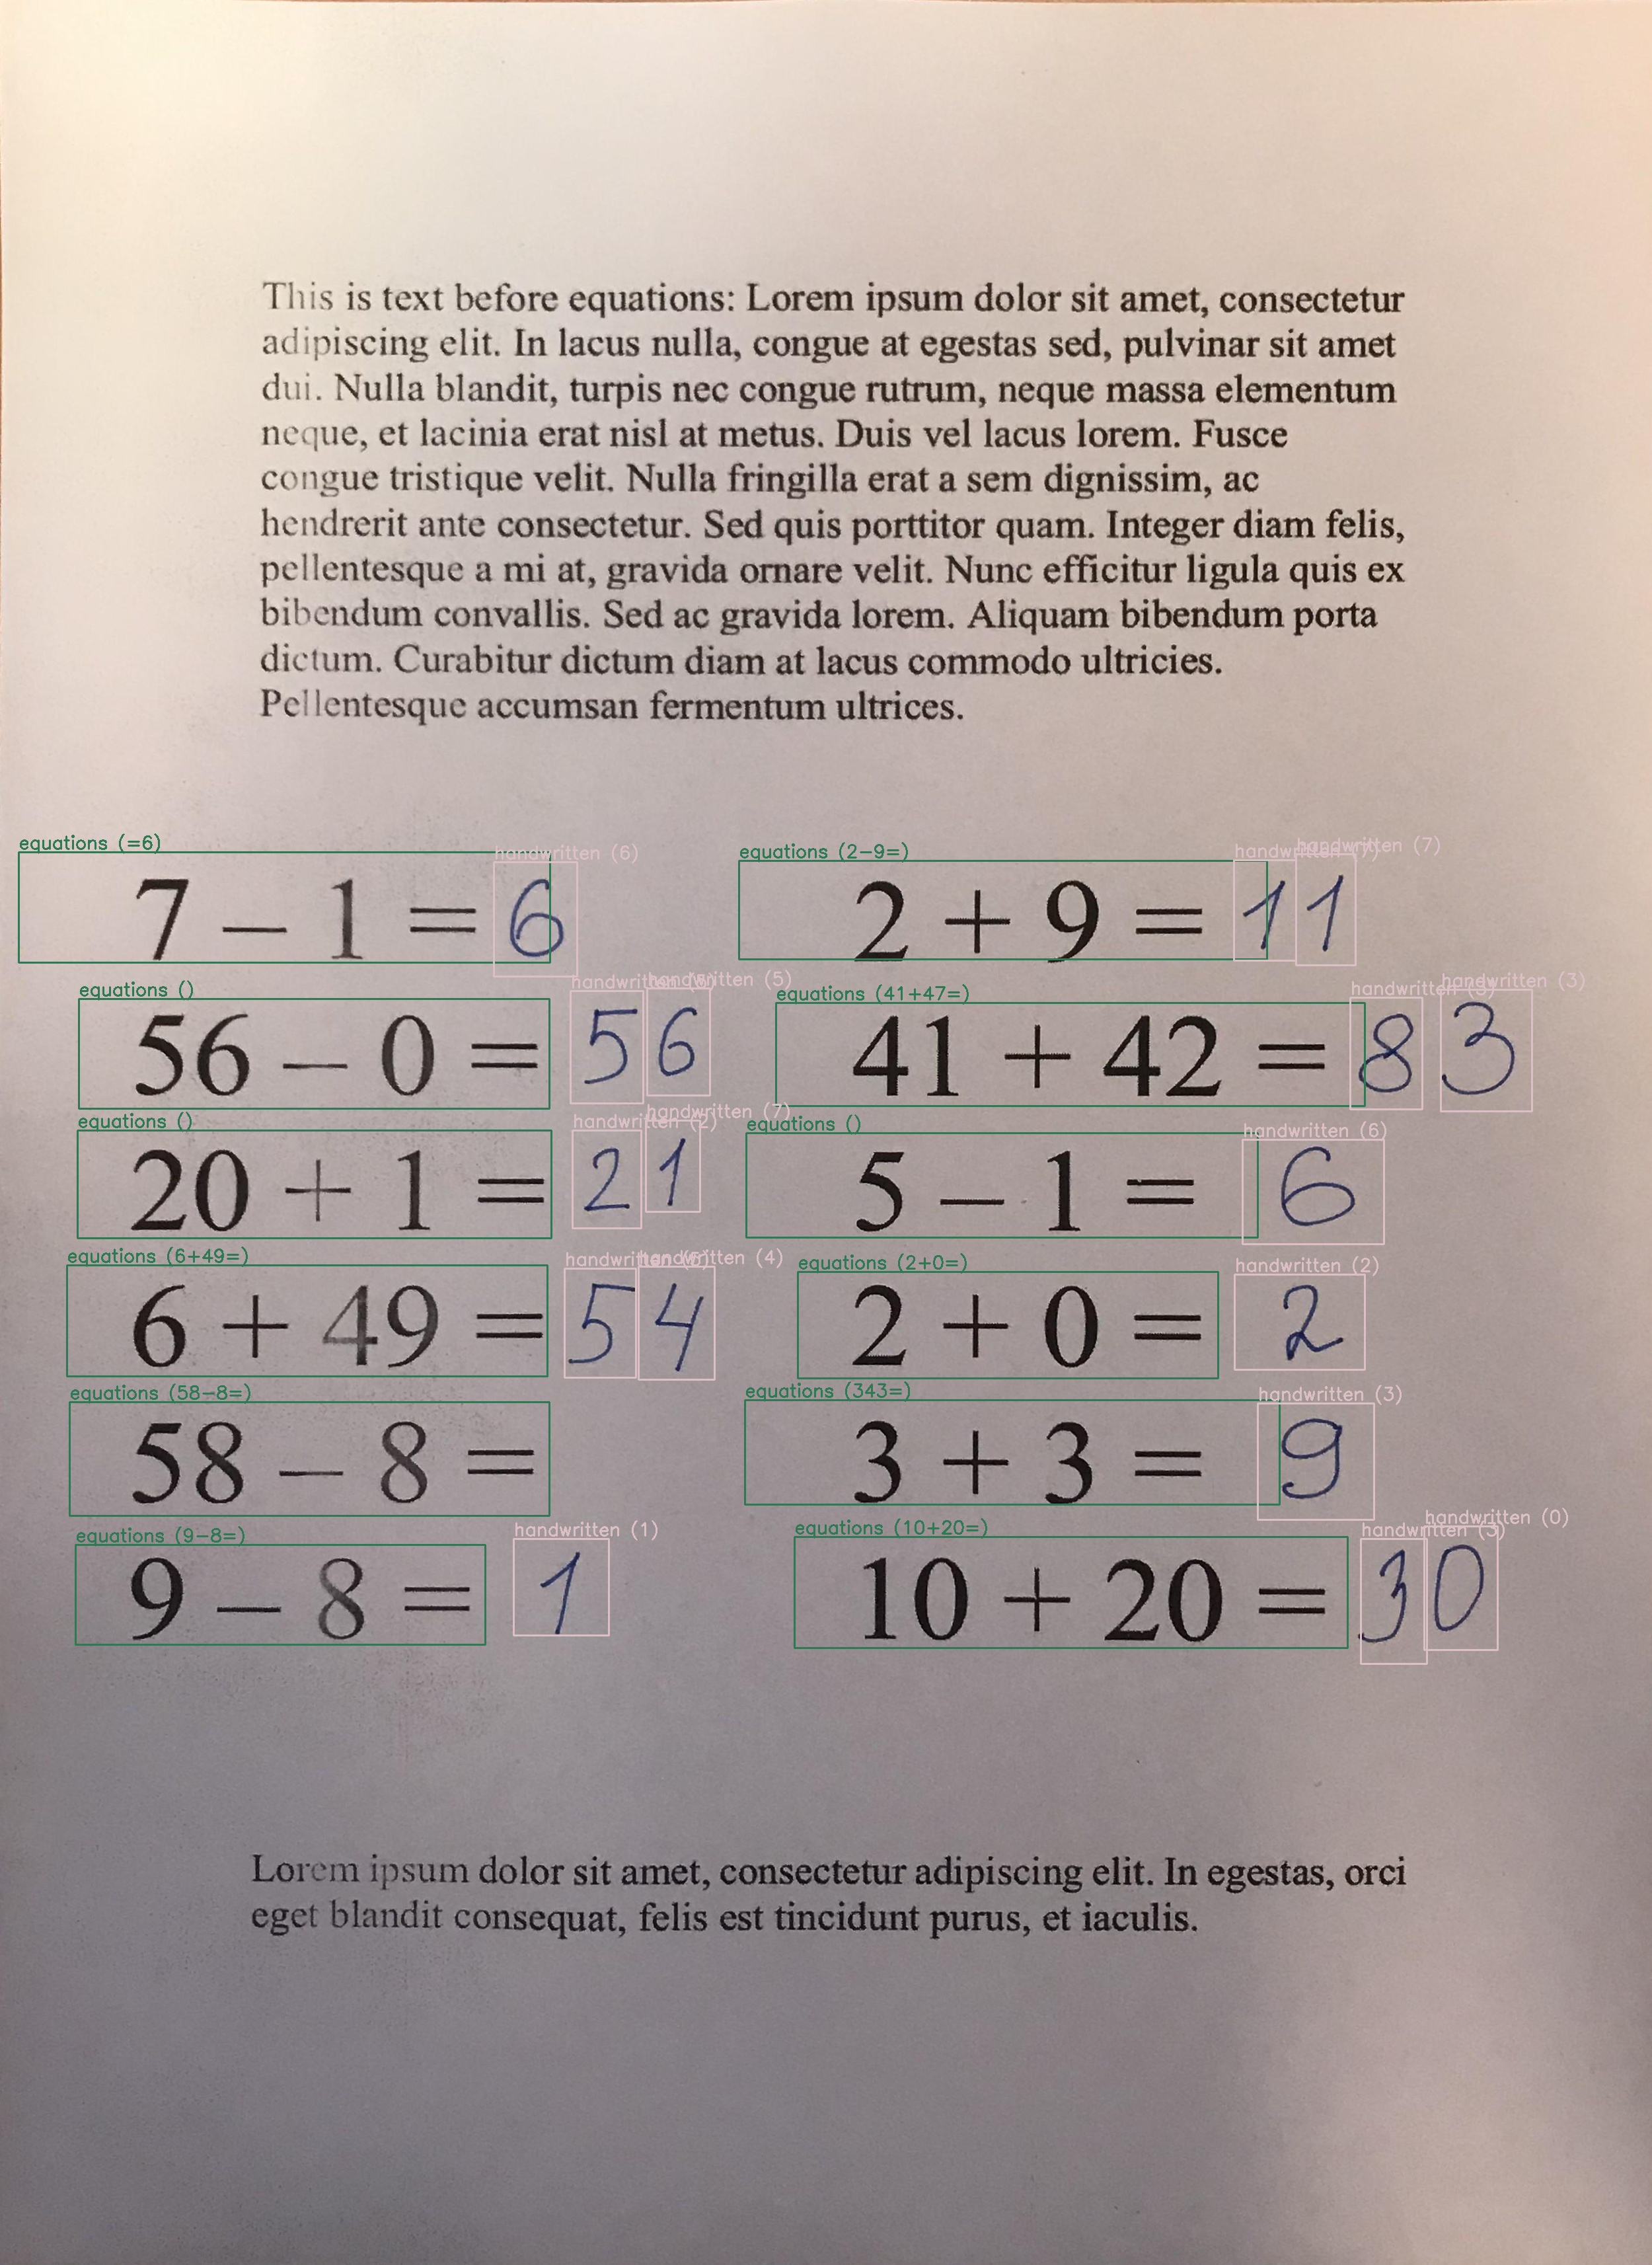 This is text before equations: Lorem ipsum dolor sit amet, consectetur
adipiscing elit. In lacus nulla, congue at egestas sed, pulvinar sit amet
dui. Nulla blandit, turpis nec congue rutrum, neque massa elementum
neque, et lacinia erat nisl at metus. Duis vel lacus lorem. Fusce
congue tristique velit. Nulla fringilla erat a sem dignissim, ac
hendrerit ante consectetur. Sed quis porttitor quam. Integer diam felis,
pellentesque a mi at, gravida ornare velit. Nunc efficitur ligula quis ex
bibendum convallis. Sed ac gravida lorem. Aliquam bibendum porta
dictum. Curabitur dictum diam at lacus commodo ultricies.
Pellentesque accumsan fermentum ultrices.
equations (=6) handwritten (6) equations (2-9=) handwritten (7)
7 – 1 = 6 2 + 9 = 11
equations () handwritten (5) equations (41+47=) handwritten (3)
56 – 0 = 56 41 + 42 = 83
equations () handwritten (2) handwritten (7) equations () handwritten (6)
20 + 1 = 21 5 – 1 = 6
equations (6+49=) handwritten (4) equations (2+0=) handwritten (2)
6 + 49 = 54 2 + 0 = 2
equations (58-8=) equations (343=) handwritten (3)
58 – 8 = 3 + 3 = 9
equations (9-8=) handwritten (1) equations (10+20=) handwritten (3) handwritten (0)
9 – 8 = 1 10 + 20 = 30
Lorem ipsum dolor sit amet, consectetur adipiscing elit. In egestas, orci
eget blandit consequat, felis est tincidunt purus, et iaculis.